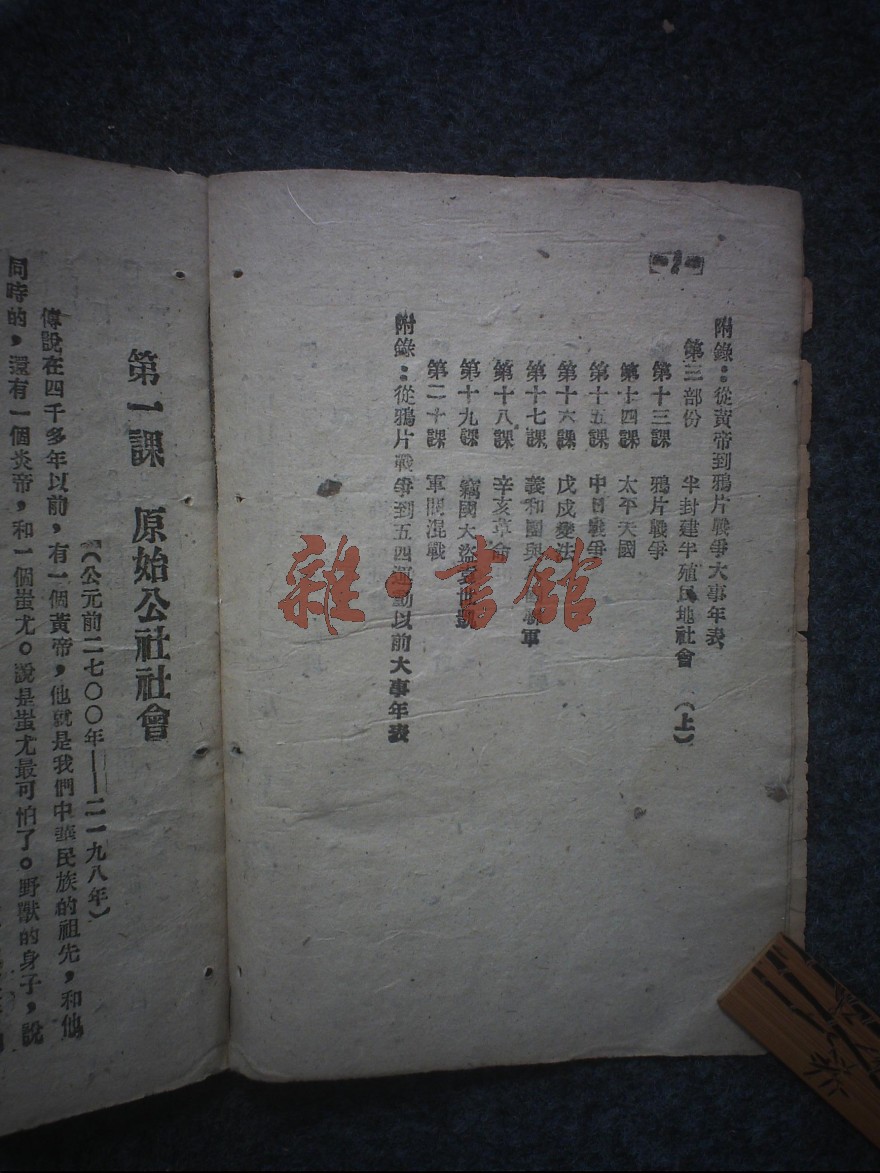 附錄：從黃帝到鴉片戰爭大事年表
第三部份　半封建半殖民地社會　（上）
第十三課　鴉片戰爭
第十四課　太平天國
第十五課　中日戰爭
第十六課　戊戌變法
第十七課　義和團與 軍
第十八課　辛亥革命
第十九課　竊國大盜袁世凱
第二十課　軍閥混戰
附錄：從鴉片戰爭到五四運動以前大事年表
第一課　原始公社社會
（公元前二七〇〇年——二一九八年）
傳說在四千多年以前，有一個黃帝，他就是我們中華民族的祖先，和他
同時的，還有一個炎帝，和一個蚩尤。說是蚩尤最可怕了。野獸的身子，說
雜·書館